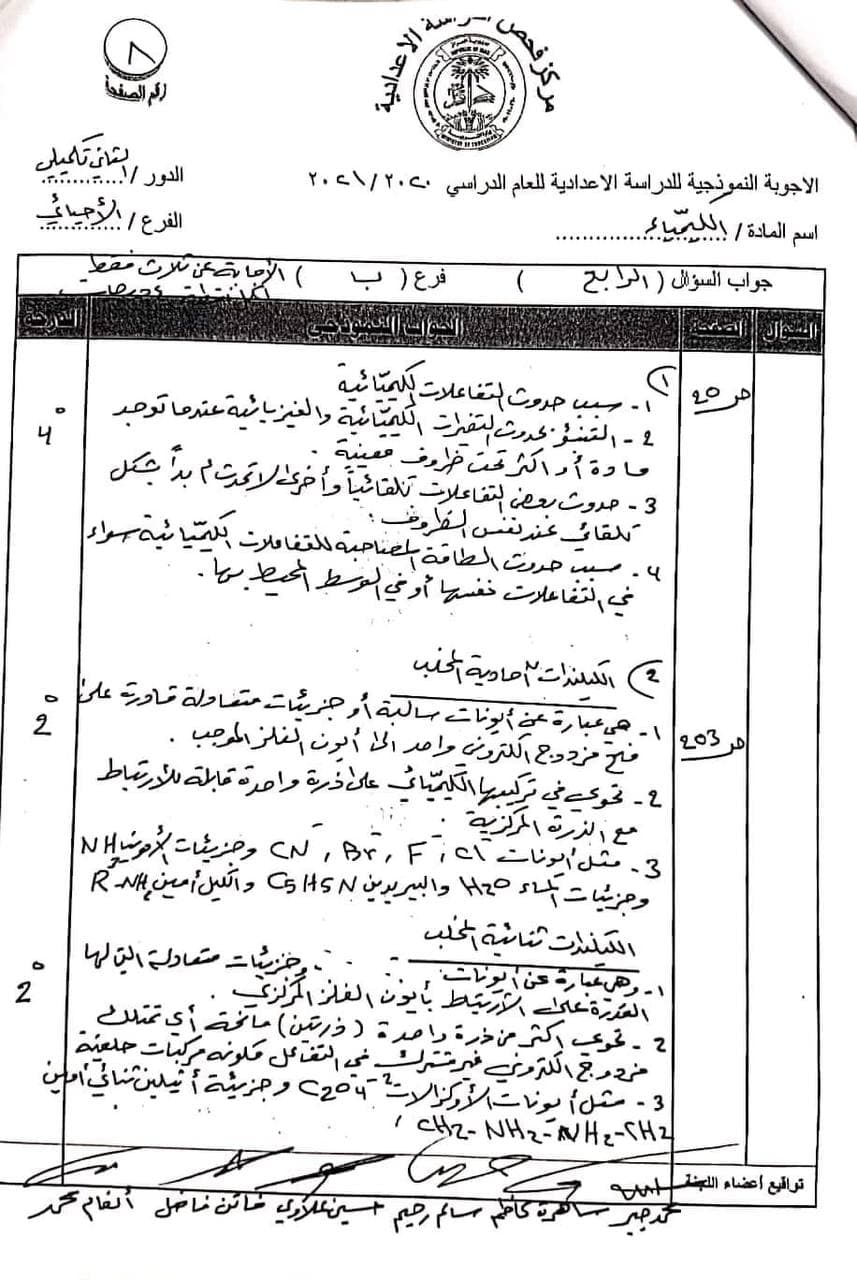 مركز فحص الدراسة الاعدادية
٨
رقم الصفحة
الاجوبة النموذجية للدراسة الاعدادية للعام الدراسي ٢٠٢٠ / ٢٠٢١
الدور / الثاني تكميلي
اسم المادة / الكيمياء
الفرع / الأحيائي
جواب السؤال ( الرابع ) فرع ( ب ) الأجابة عن ثلاث فقط
السؤال الصفحة الجواب النموذجي الدرجة
ص 20
4°
1) 1- سبب حدوث التفاعلات الكيميائية
2- التنبؤ بحدوث التغيرات الكيميائية والفيزيائية عندما توجد
مادة أو اكثر تحت ظروف معينة .
3- حدوث بعض التفاعلات تلقائياً وأخرى لا تحدث ابداً بشكل
تلقائي عند نفس الظروف .
4- سبب حدوث الطاقة المصاحبة للتفاعلات الكيميائية سواء
في التفاعلات نفسها أو في الوسط المحيط بها .
2) الكليندات احادية المخلب
ص 203
2°
1- هي عبارة عن أيونات سالبة أو جزيئات متعادلة قادرة على
منح مزدوج الكتروني واحد الى أيون الفلز الموجب .
2- تحوي في تركيبها الكيميائي على ذرة واحدة قابلة للأرتباط
مع الذرة المركزية .
3- مثل أيونات Cl⁻ , F⁻ , Br⁻ , CN⁻ وجزيئات الأمونيا NH3
وجزيئات الماء H2O والبيريدين C5H5N والكيل أمين R-NH2
الليكندات ثنائية المخلب
2°
1- وهي عبارة عن أيونات وجزيئات متعادلة التي لها
القدرة على الارتباط بأيون الفلز المركزي .
2- تحوي اكثر من ذرة واحدة ( ذرتين ) مانحة أي تمتلك
مزدوج الكتروني غير مشترك في التفاعل مكونه مركبات حلقية
3- مثل أيونات الأوكزالات C2O4⁻² وجزيئة أثيلين ثنائي أمين
CH2-NH2-NH2-CH2
تواقيع أعضاء اللجنة
محمد جبر ساهرة كاظم سالم رحيم حسين علاوي فاتن فاضل أنغام محمد